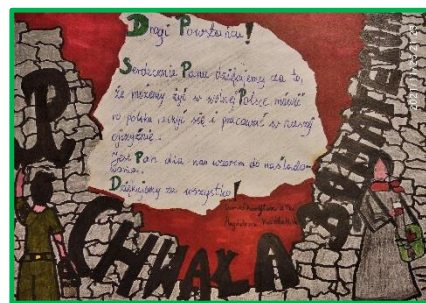 Drogi Powstańcu!
Serdecznie Panu dziękujemy za to,
że możemy żyć w wolnej Polsce, mówić
po polsku, uczyć się i pracować w naszej
ojczyźnie.
Jest Pan dla nas wzorem do naślado-
wania.
Dziękujemy za wszystko!
Magdalena
CHWAŁA
BOHATEROM